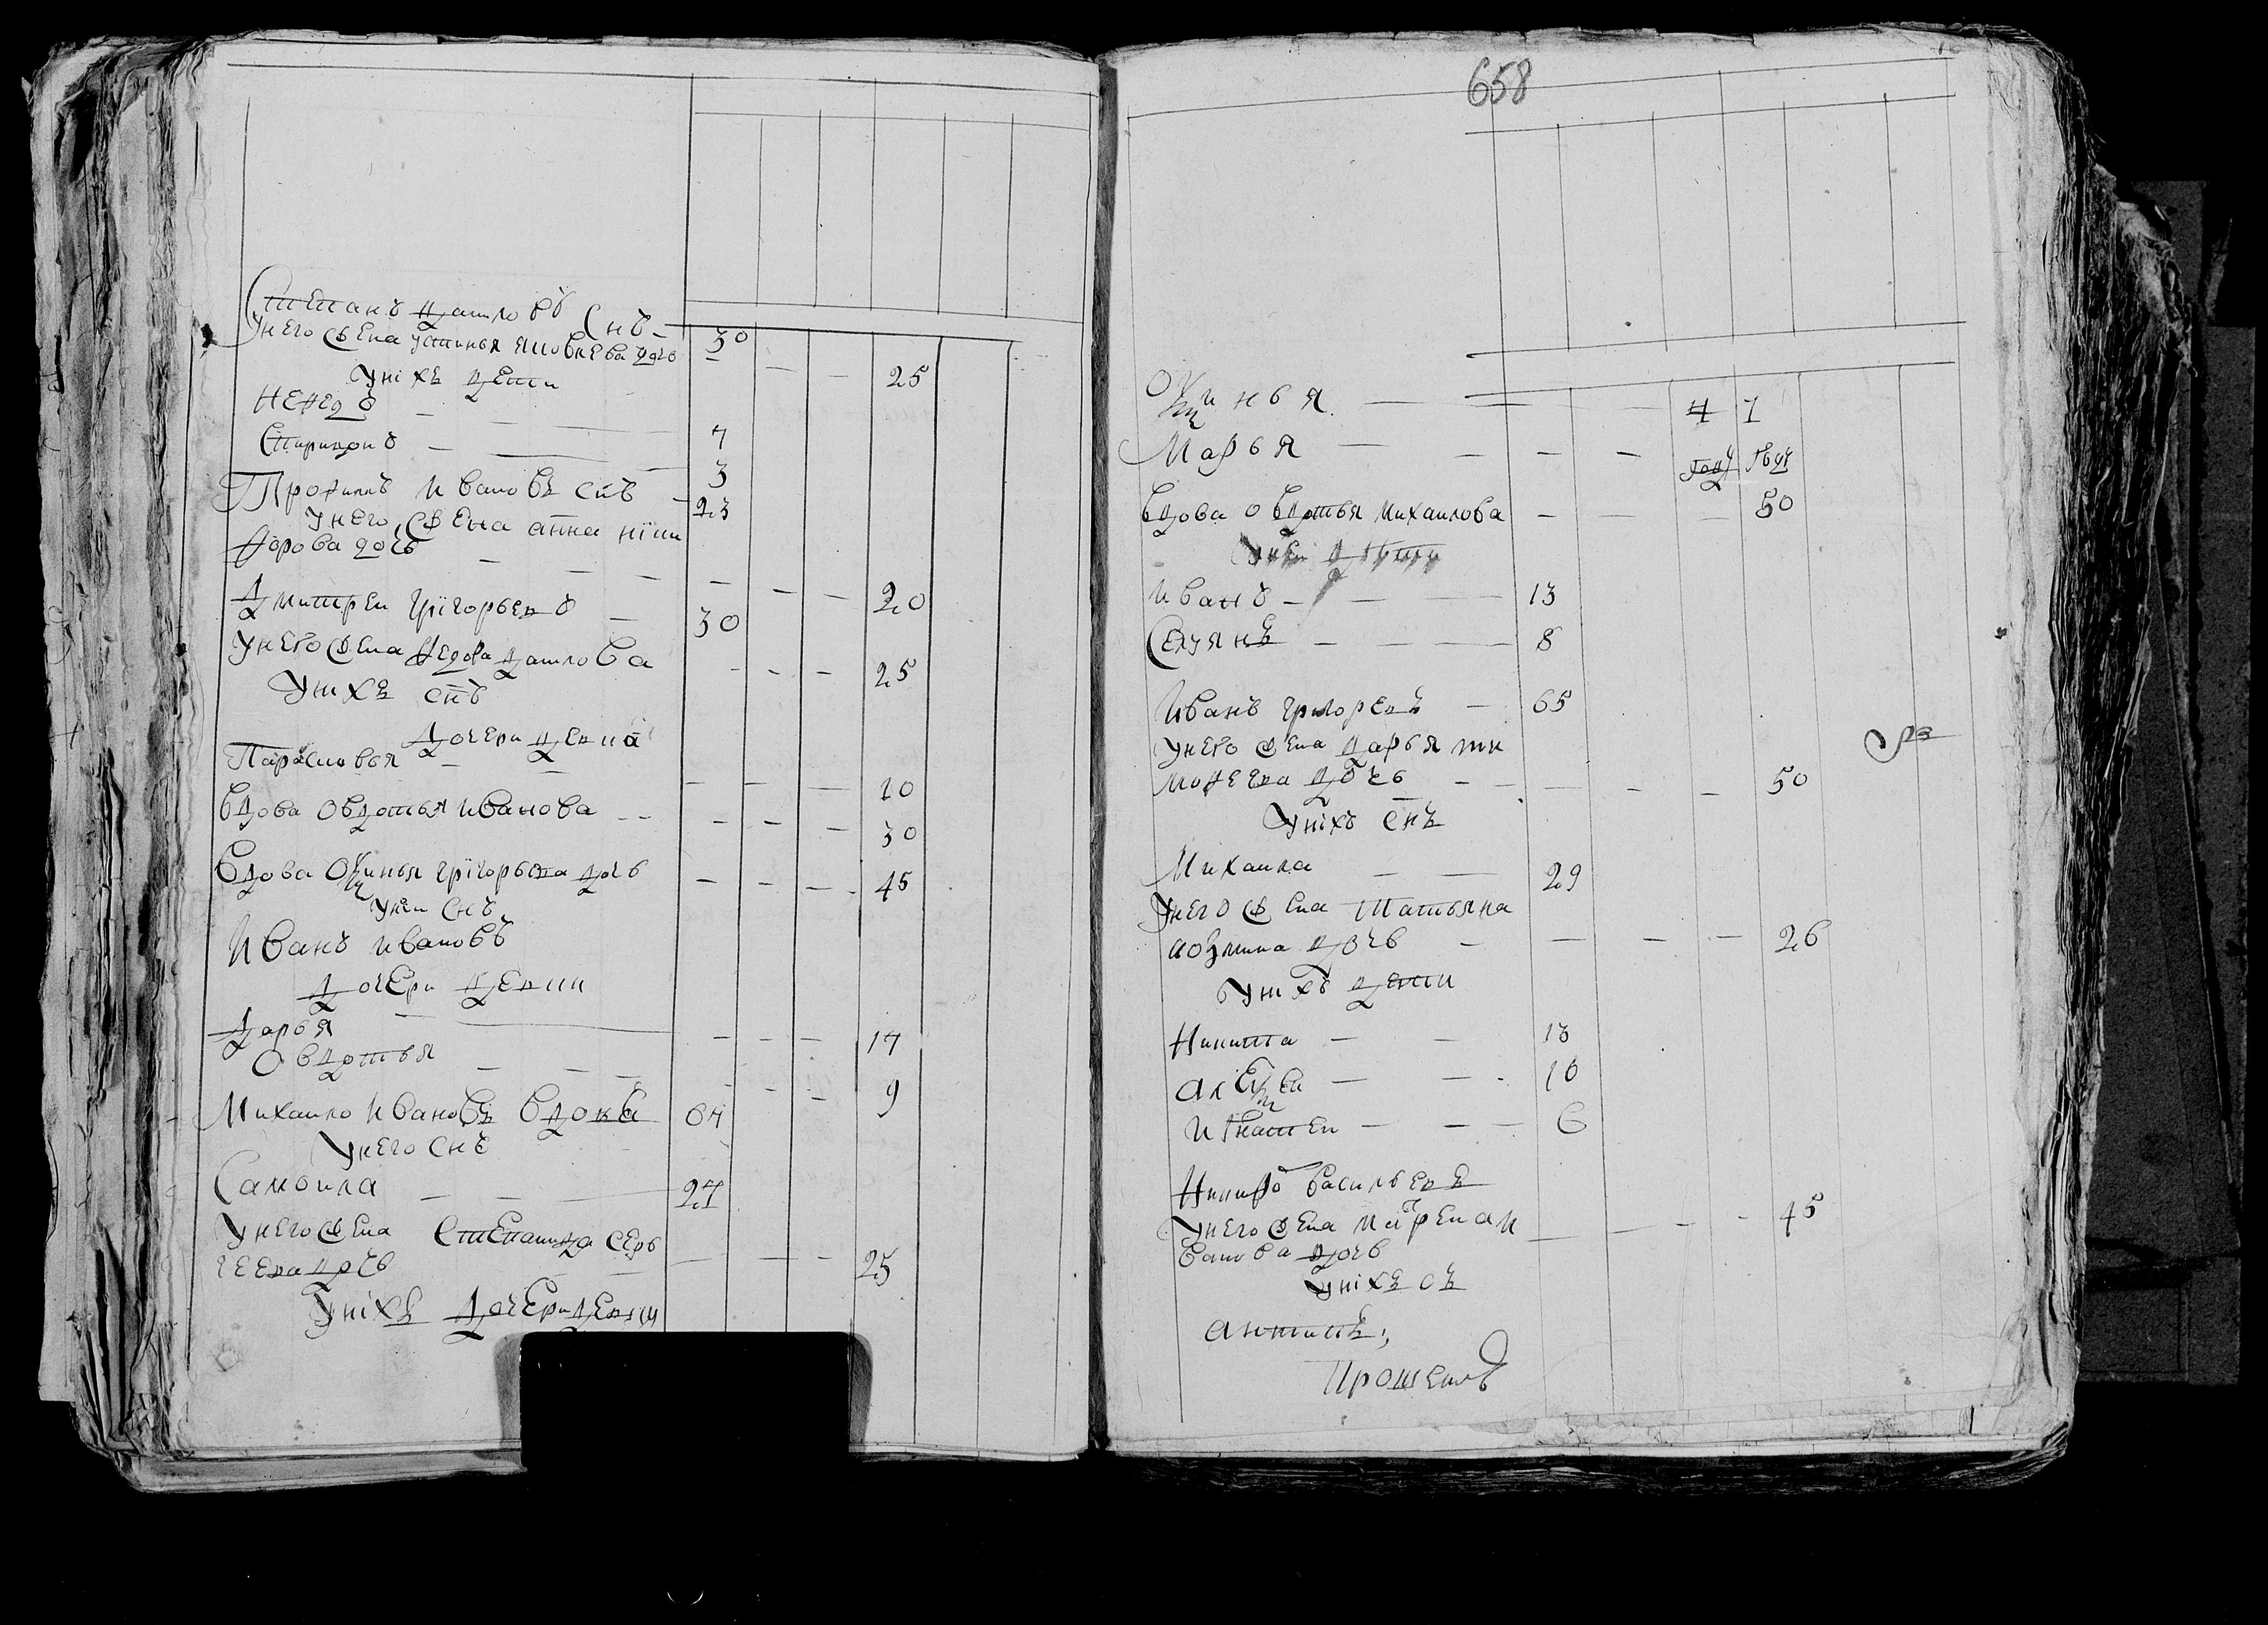 Степанъ Даниловъ Снъ 30
Унего жена Устинья Яковлева дочь 25
Унiхъ дети
Нефедъ 7
Спиридонъ 3
Трофимъ Ивановъ снъ 23
Унего жена анна нiки
форова дочь 20
Дмитреи Григорьевъ 30
Унего жена Федора Данилова 25
Униxъ снъ
Дочери девки
Парасковья 10
Вдова Овдотья Иванова 30
Вдова Оксинья Григорьева дочь 45
Унеи Снъ
Иванъ Ивановъ
Дочери девки
Дарья 17
Овдотья 9
Михаило Ивановъ вдовъ 64
Унего Снъ
Самоила 27
Унего жена Степанида Сер
геева дочь 25
Унiхъ Дочери девки
658
Оксинья 4 1
Марья году году
Вдова Овдотья Михаилова 50
Унеи Дети
Иванъ 13
Селуянъ 8
Иванъ Григоревъ 65
Унего жена Дарья ти
мофеева дочь 50
Унiхъ Снъ
Михаила 29
Унего жена Татьяна
козмина дочь 26
Унихъ дети
Никита 13
Алексеи 10
Игнатеи 6
Никифоръ Васильевъ
Унего жена Матрена И
ванова дочь 45
Унiхъ Снъ
Антипъ
Прошенъ